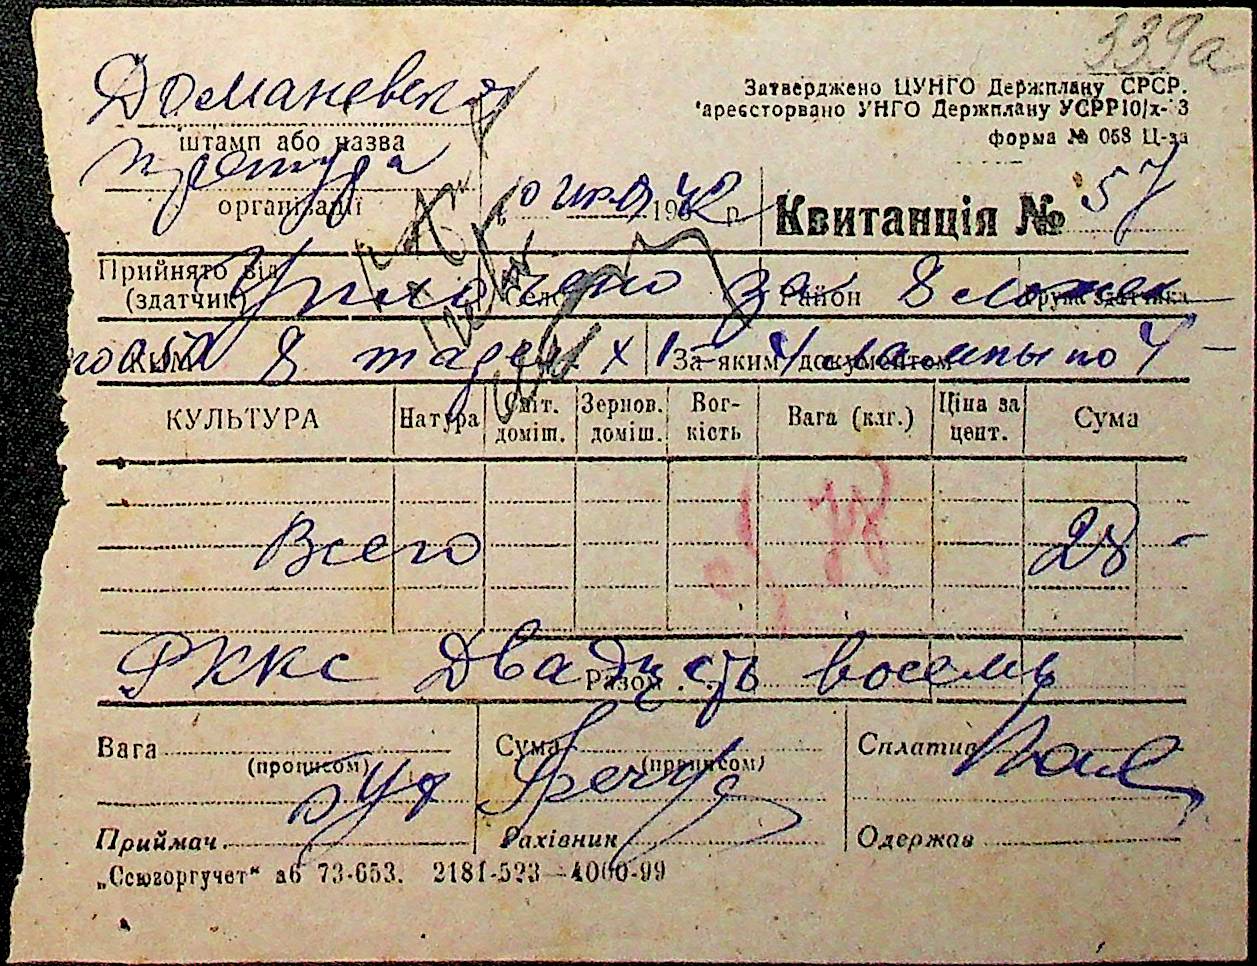 339а
Доманевская
Затверджено ЦУНГО Держплану СРСР.
штамп або назва
ареєсторвано УНГО Держплану УСРР 10/х- 3
форма № 058 Ц-за
претура
організації
10 июля 1942 р.
Квитанція № 57
Прийнято від
(здатчик)
Село
Район
Уплочено за 8 ложек
Ким
За яким документом
8 х 1 - 4 лампы по 4 -
КУЛЬТУРА Натура Сміт. доміш. Зернов. доміш. Вог-кість Вага (клг.) Ціна за цент. Сума
Всего 28 -
РККС Двадцать восемь
Разом
Вага
(прописом)
Сума
(прописом)
Сплатив
Приймач
Рахівник
Одержав
„Союзоргучет“ аб 73-653. 2181-523—4000-99